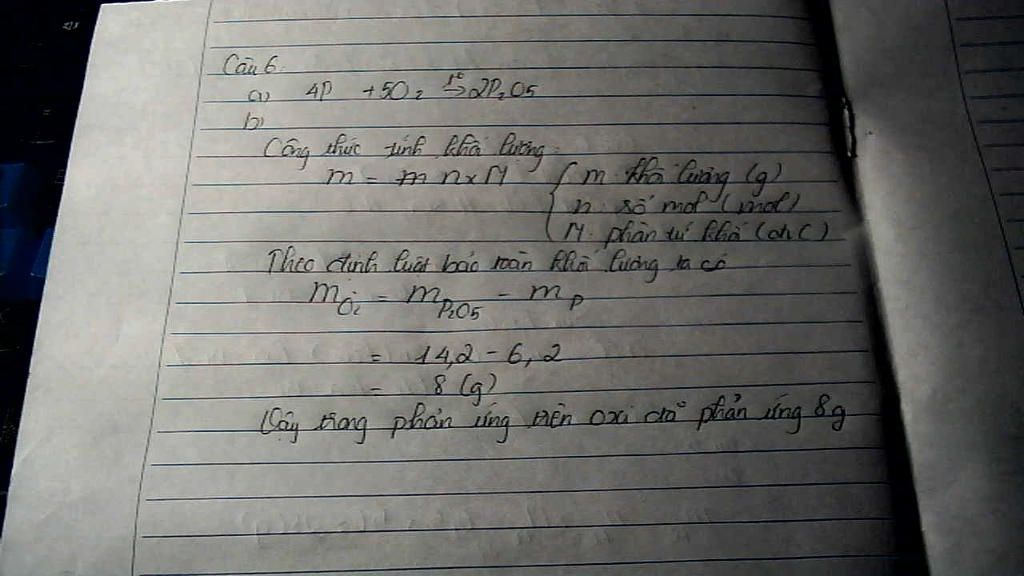 Câu 6:
a) 4P + 5O₂ t° → 2P₂O₅
b)
Công thức tính khối lượng:
m = m n x M { m: khối lượng (g)
n: số mol (mol)
M: phân tử khối (đvC)
Theo định luật bảo toàn khối lượng ta có
m O₂ = m P₂O₅ - m P
= 14,2 - 6,2
= 8 (g)
Vậy trong phản ứng trên oxi đã phản ứng 8g